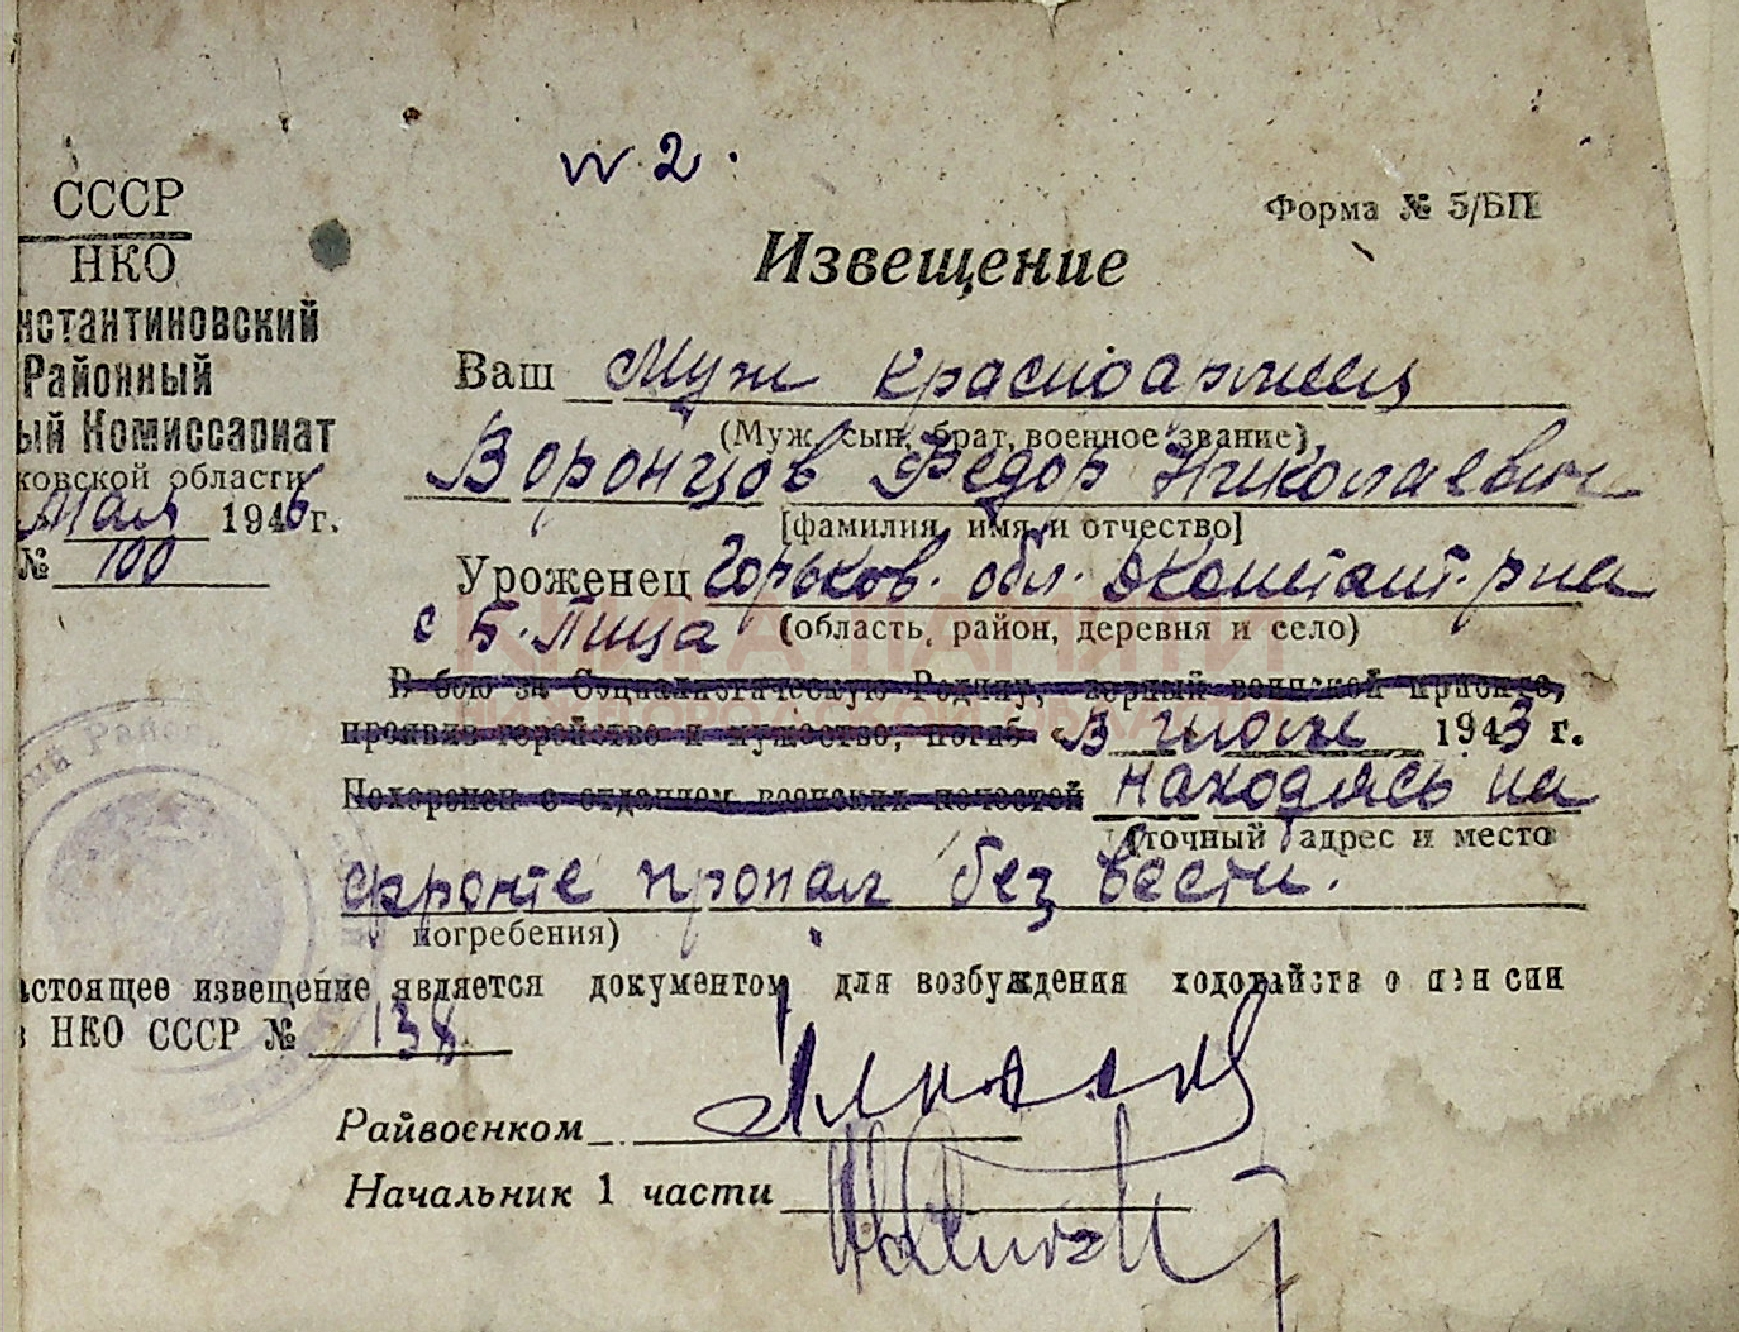 № 2.
СССР
Форма № 5/БП
НКО
Извещение
нстантиновский
Районный
ый Комиссариат
ковской области
мая 1946 г.
№ 100
Ваш Муж красноармеец
(Муж, сын, брат, военное звание)
Воронцов Федор Николаевич
[фамилия, имя и отчество]
Уроженец Горьков. обл. Дконстант. р-на
с Б. Пица (область, район, деревня и село)
КНИГА ПАМЯТИ
НИЖЕГОРОДСКОЙ ОБЛАСТИ
В бою за Социалистическую Родину, верный воинской присяге,
проявив геройство и мужество, погиб В июле 1943 г.
Похоронен с отданием воинских почестей находясь на
(точный адрес и место
фронте пропал без вести.
погребения)
астоящее извещение является документом для возбуждения ходатайств о пенсии
НКО СССР № 138
Райвоенком
Начальник 1 части